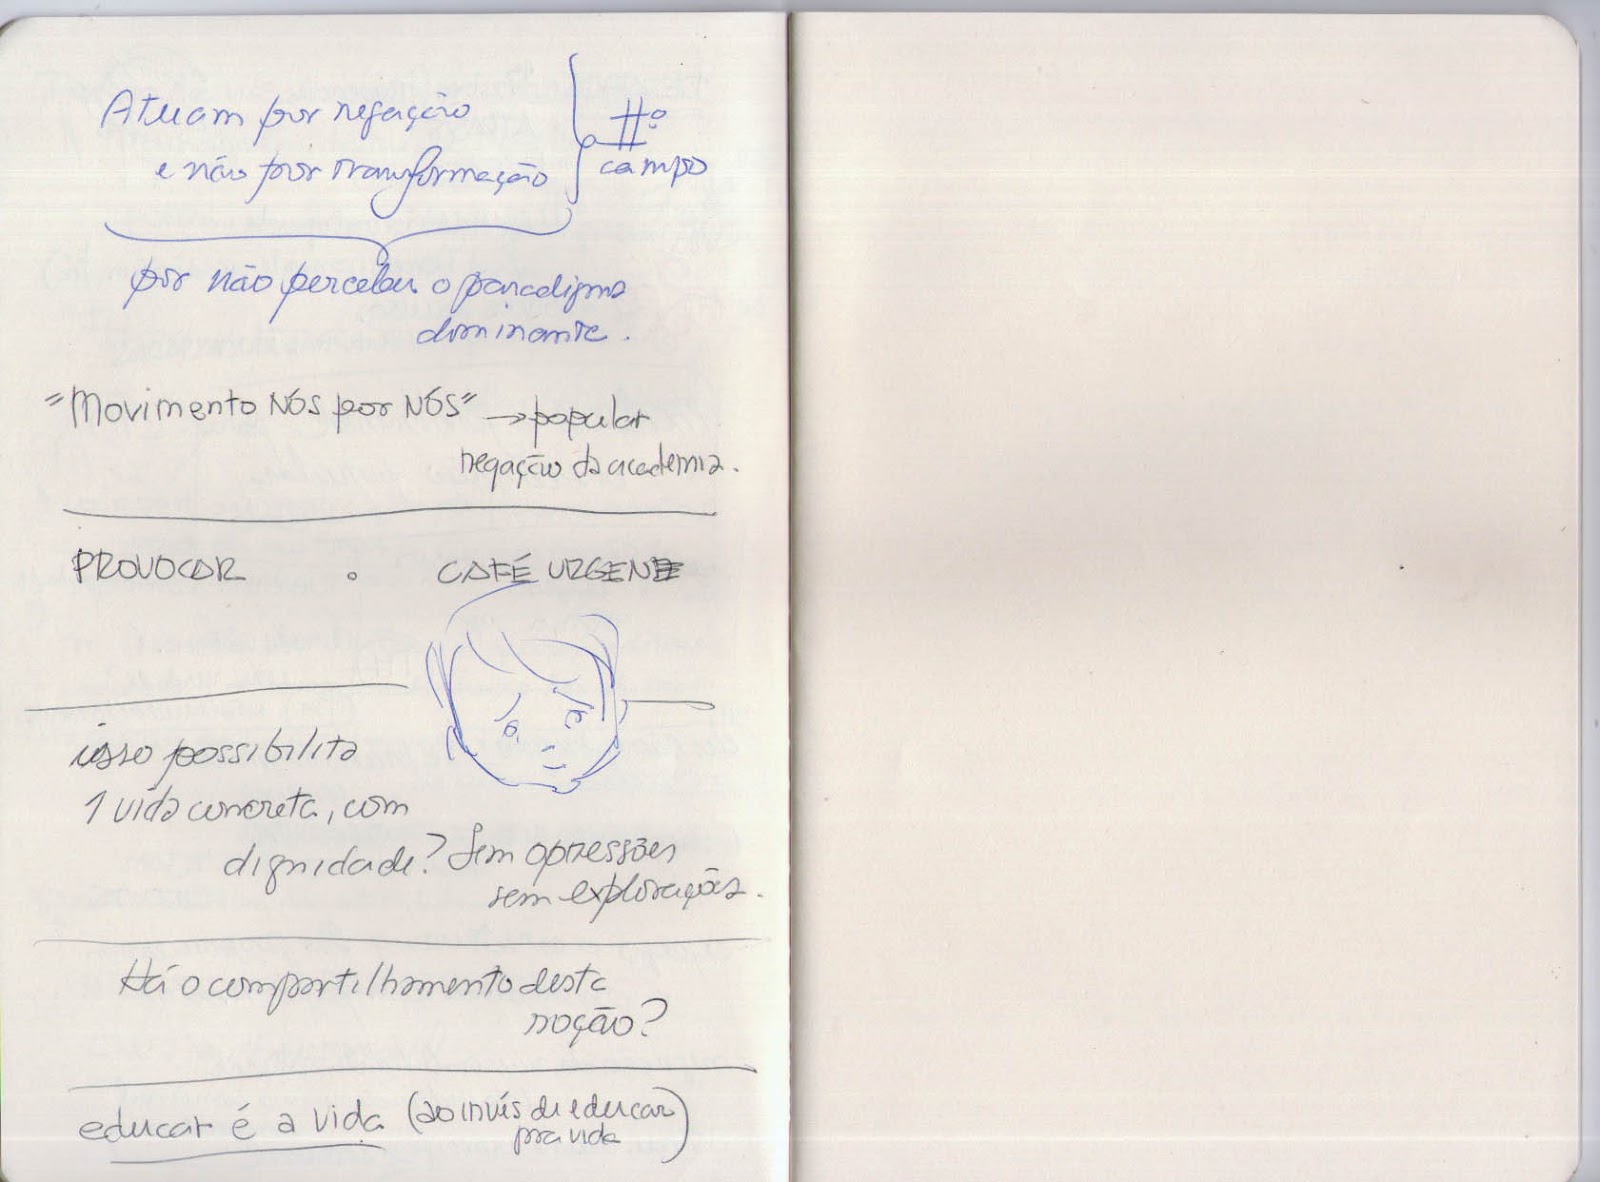 Atuam por negação
e não por transformação
#º
campo
por não perceber o paradigma
dominante.
"Movimento NÓS por NÓS" → popular
negação da academia.
PROVOCAR . CAFÉ URGENTE
isso possibilita
1 vida concreta, com
dignidade? Sem opressões
sem explorações.
Há o compartilhamento desta
noção?
educar é a vida (ao invés de educar
pra vida)